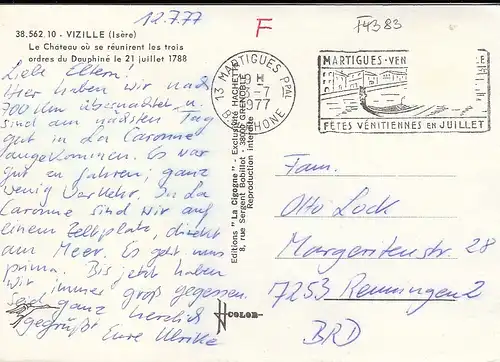 12.7.77
F
I4383
38.562.10 - VIZILLE (Isère)
Le Château où se réunirent les trois
ordres du Dauphiné le 21 juillet 1788
Liebe Eltern!
Hier haben wir nach
700 km übernachtet u.
sind am nächsten Tag
gut in La Caronne
angekommen. Es war
gut zu fahren; ganz
wenig Verkehr. In La
Caronne sind wir auf
einem Zeltplatz, direkt
am Meer. Es geht uns
prima. Bis jetzt haben
wir immer groß gegessen.
Seid ganz herzlich
gegrüßt Eure Ulrike
Editions "La Cigogne" - Exclusivité HACHETTE
8, rue Sergent Bobillot - 38000 GRENOBLE
Reproduction interdite
COLOR
13 MARTIGUES PPAL
-7
1977
RHONE
MARTIGUES-VEN
FÊTES VÉNITIENNES EN JUILLET
Fam.
Otto Lock
Margeritenstr. 28
7253 Renningen 2
BRD